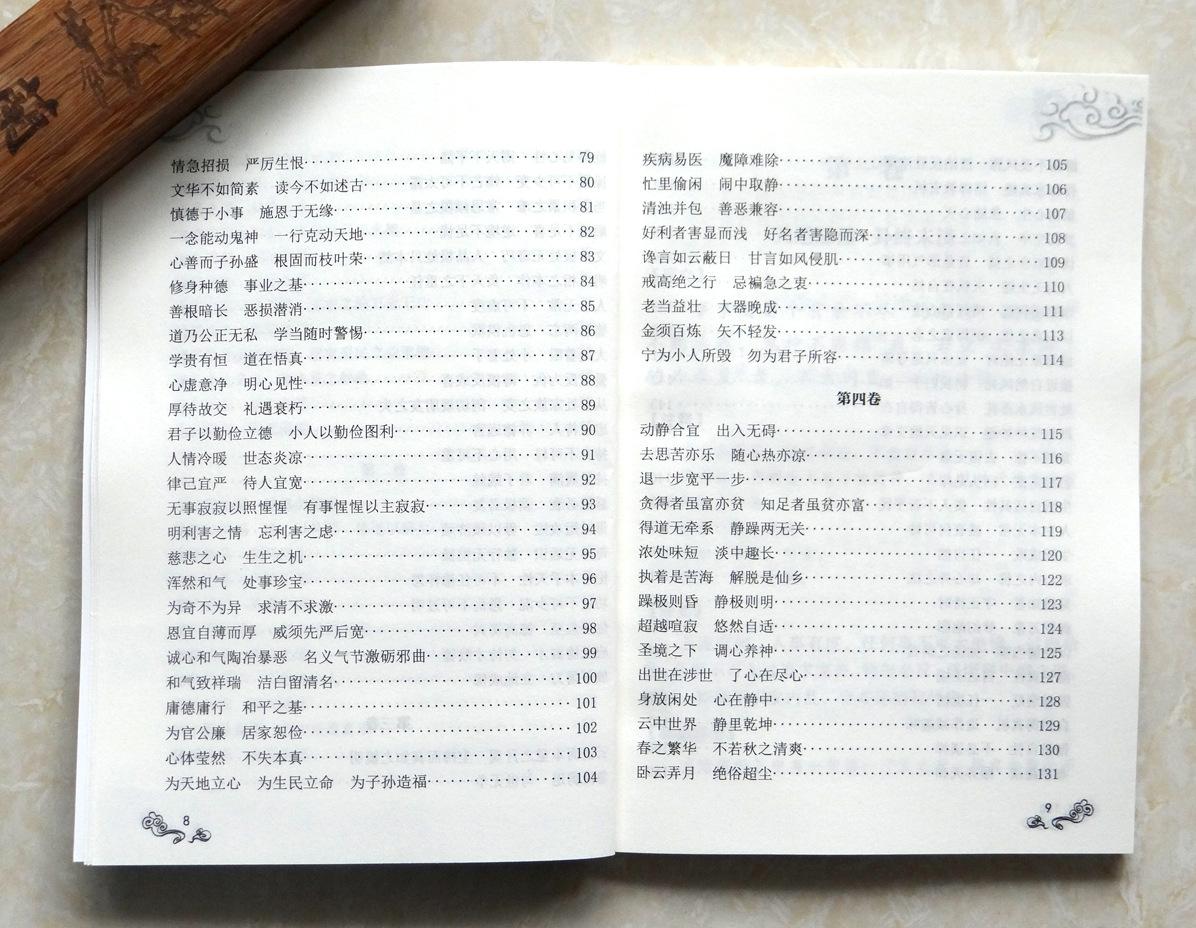 情急招损　严厉生恨··························79
文华不如简素　读今不如述古····················80
慎德于小事　施恩于无缘·······················81
一念能动鬼神　一行克动天地····················82
心善而子孙盛　根固而枝叶荣····················83
修身种德　事业之基··························84
善根暗长　恶损潜消··························85
道乃公正无私　学当随时警惕····················86
学贵有恒　道在悟真··························87
心虚意净　明心见性··························88
厚待故交　礼遇衰朽··························89
君子以勤俭立德　小人以勤俭图利·················90
人情冷暖　世态炎凉··························91
律己宜严　待人宜宽··························92
无事寂寂以照惺惺　有事惺惺以主寂寂··············93
明利害之情　忘利害之虑·······················94
慈悲之心　生生之机··························95
浑然和气　处事珍宝··························96
为奇不为异　求清不求激·······················97
恩宜自薄而厚　威须先严后宽····················98
诚心和气陶冶暴恶　名义气节激砺邪曲··············99
和气致祥瑞　洁白留清名·······················100
庸德庸行　和平之基··························101
为官公廉　居家恕俭··························102
心体莹然　不失本真··························103
为天地立心　为生民立命　为子孙造福··············104
8
疾病易医　魔障难除··························105
忙里偷闲　闹中取静··························106
清浊并包　善恶兼容··························107
好利者害显而浅　好名者害隐而深·················108
谗言如云蔽日　甘言如风侵肌····················109
戒高绝之行　忌褊急之衷·······················110
老当益壮　大器晚成··························111
金须百炼　矢不轻发··························113
宁为小人所毁　勿为君子所容····················114
第四卷
动静合宜　出入无碍··························115
去思苦亦乐　随心热亦凉·······················116
退一步宽平一步·····························117
贪得者虽富亦贫　知足者虽贫亦富·················118
得道无牵系　静躁两无关·······················119
浓处味短　淡中趣长··························120
执着是苦海　解脱是仙乡·······················122
躁极则昏　静极则明··························123
超越喧寂　悠然自适··························124
圣境之下　调心养神··························125
出世在涉世　了心在尽心·······················127
身放闲处　心在静中··························128
云中世界　静里乾坤··························129
春之繁华　不若秋之清爽·······················130
卧云弄月　绝俗超尘··························131
9